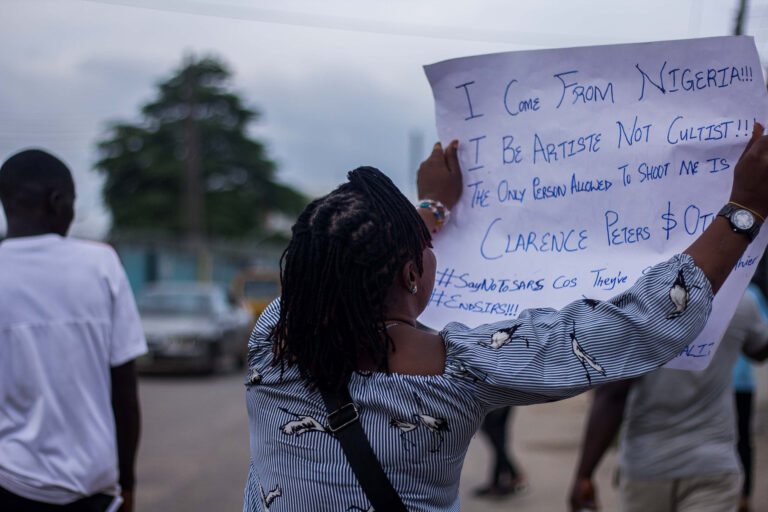 I COME FROM NIGERIA!!!
I BE ARTISTE NOT CULTIST!!!
THE ONLY PERSON ALLOWED TO SHOOT ME IS
CLARENCE PETERS $
#SAYNOTOSARS COS THEY'VE
#ENDSIRS!!!